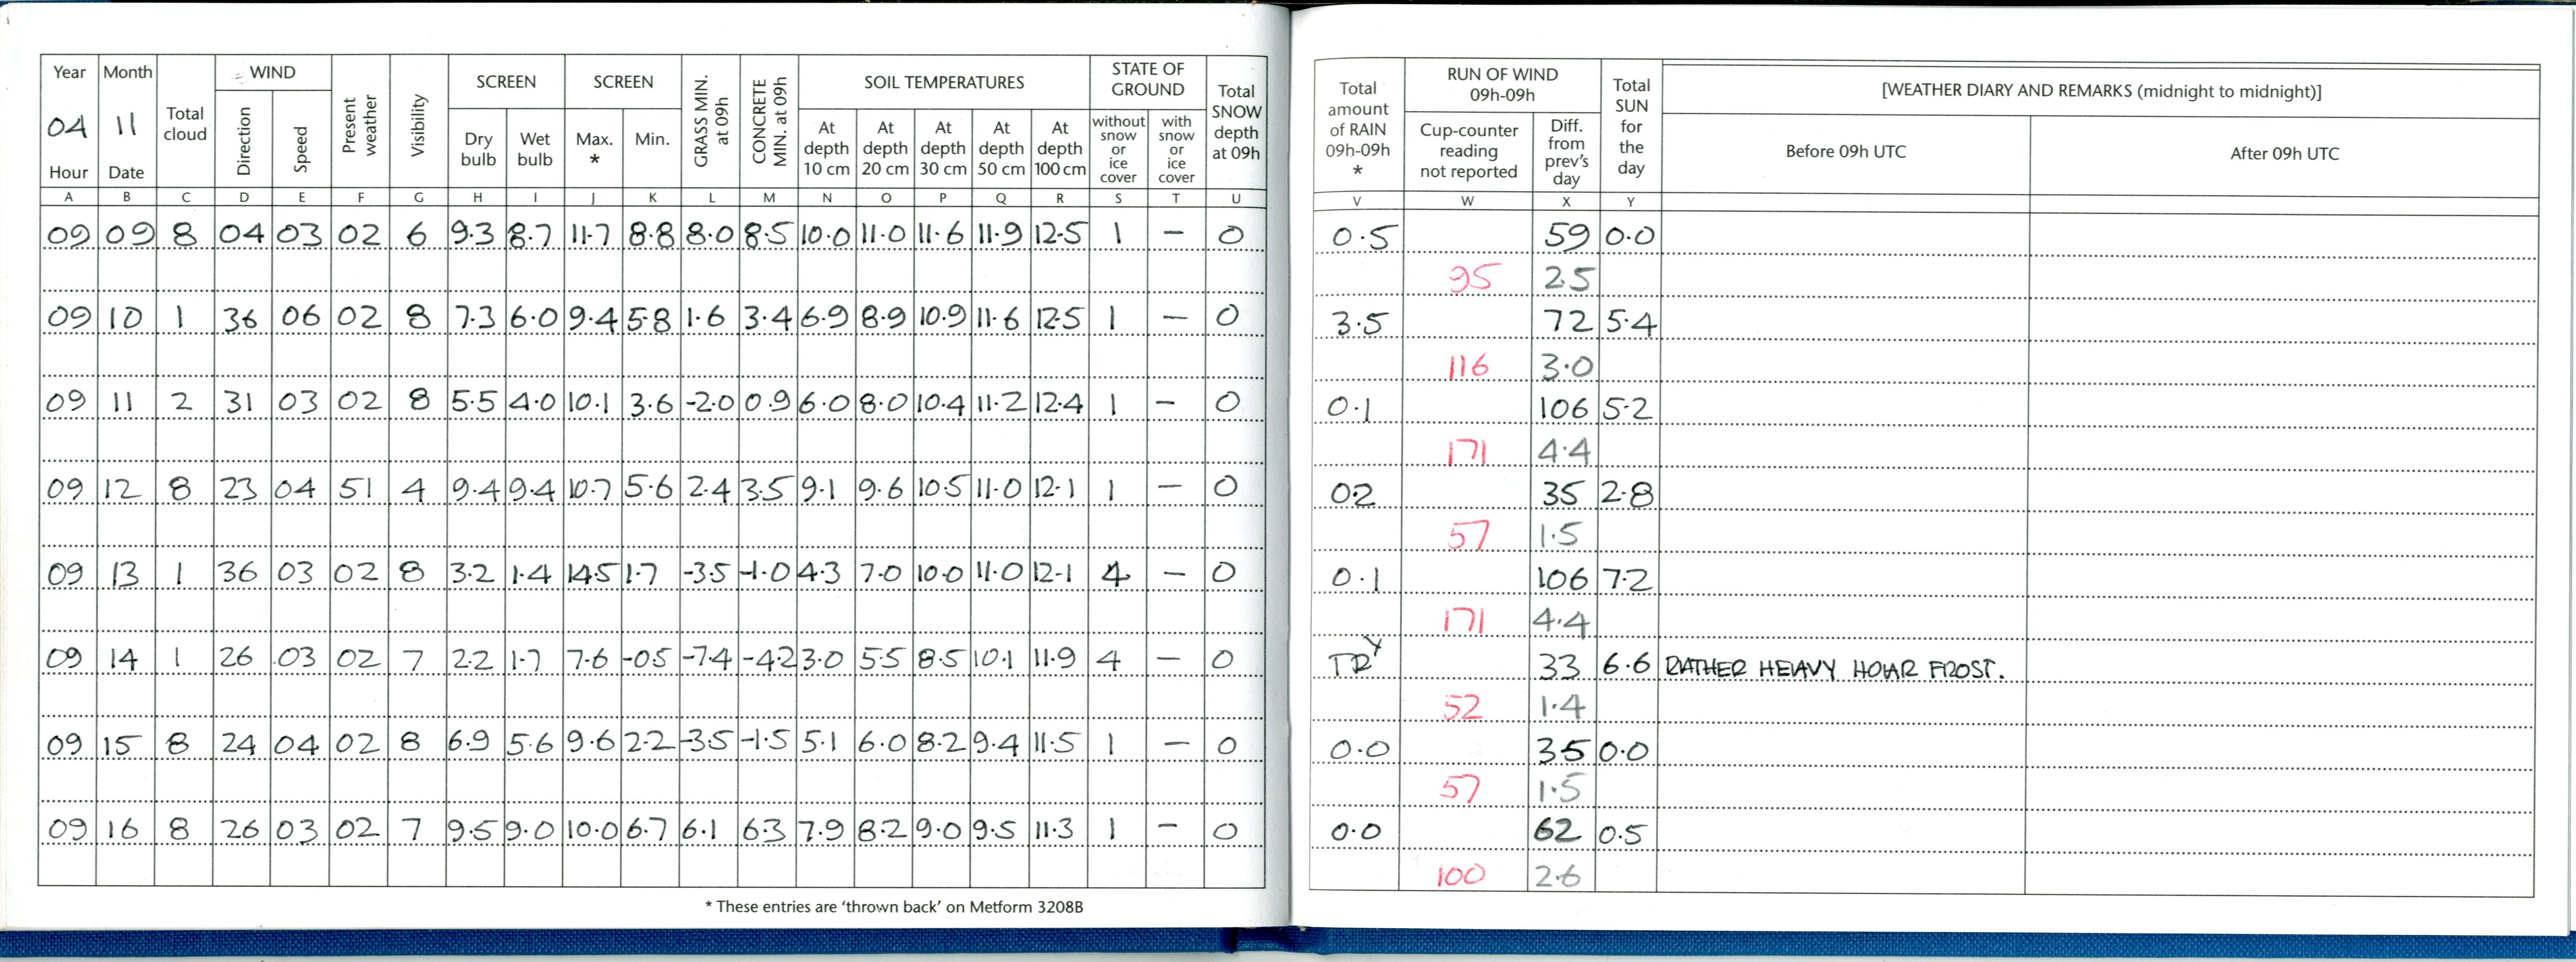 Year Month Total cloud WIND Present weather Visibility SCREEN SCREEN GRASS MIN. at 09h CONCRETE MIN. at 09h SOIL TEMPERATURES STATE OF GROUND Total SNOW depth at 09h
04 11 Direction Speed Dry bulb Wet bulb Max. * Min. At depth 10 cm At depth 20 cm At depth 30 cm At depth 50 cm At depth 100 cm without snow or ice cover with snow or ice cover
Hour Date
A B C D E F G H I J K L M N O P Q R S T U
09 09 8 04 03 02 6 9.3 8.7 11.7 8.8 8.0 8.5 10.0 11.0 11.6 11.9 12.5 1 — 0
09 10 1 36 06 02 8 7.3 6.0 9.4 5.8 1.6 3.4 6.9 8.9 10.9 11.6 12.5 1 — 0
09 11 2 31 03 02 8 5.5 4.0 10.1 3.6 -2.0 0.9 6.0 8.0 10.4 11.2 12.4 1 — 0
09 12 8 23 04 51 4 9.4 9.4 10.7 5.6 2.4 3.5 9.1 9.6 10.5 11.0 12.1 1 — 0
09 13 1 36 03 02 8 3.2 1.4 14.5 1.7 -3.5 -1.0 4.3 7.0 10.0 11.0 12.1 4 — 0
09 14 1 26 03 02 7 2.2 1.7 7.6 -0.5 -7.4 -4.2 3.0 5.5 8.5 10.1 11.9 4 — 0
09 15 8 24 04 02 8 6.9 5.6 9.6 2.2 -3.5 -1.5 5.1 6.0 8.2 9.4 11.5 1 — 0
09 16 8 26 03 02 7 9.5 9.0 10.0 6.7 6.1 6.3 7.9 8.2 9.0 9.5 11.3 1 — 0
* These entries are 'thrown back' on Metform 3208B
Total amount of RAIN 09h-09h * RUN OF WIND 09h-09h Total SUN for the day [WEATHER DIARY AND REMARKS (midnight to midnight)]
Cup-counter reading not reported Diff. from prev's day Before 09h UTC After 09h UTC
V W X Y
0.5 59 0.0
95 2.5
3.5 72 5.4
116 3.0
0.1 106 5.2
171 4.4
02 35 2.8
57 1.5
0.1 106 7.2
171 4.4
TR 33 6.6 RATHER HEAVY HOAR FROST.
52 1.4
0.0 35 0.0
57 1.5
0.0 62 0.5
100 2.6